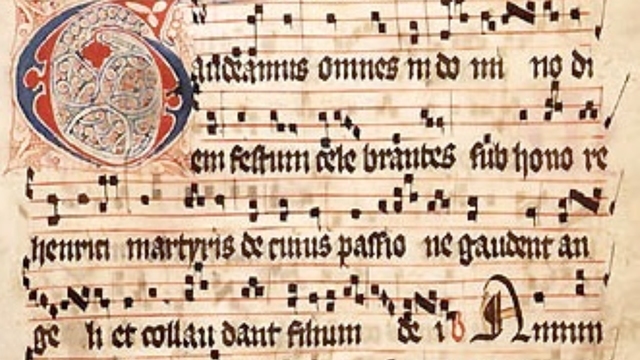 Gaudeamus omnes in do mi no di
em festum cele brantes sub hono re
henrici martyris de cuius passio ne gaudent an
ge li et collau dant filium de i v Annum